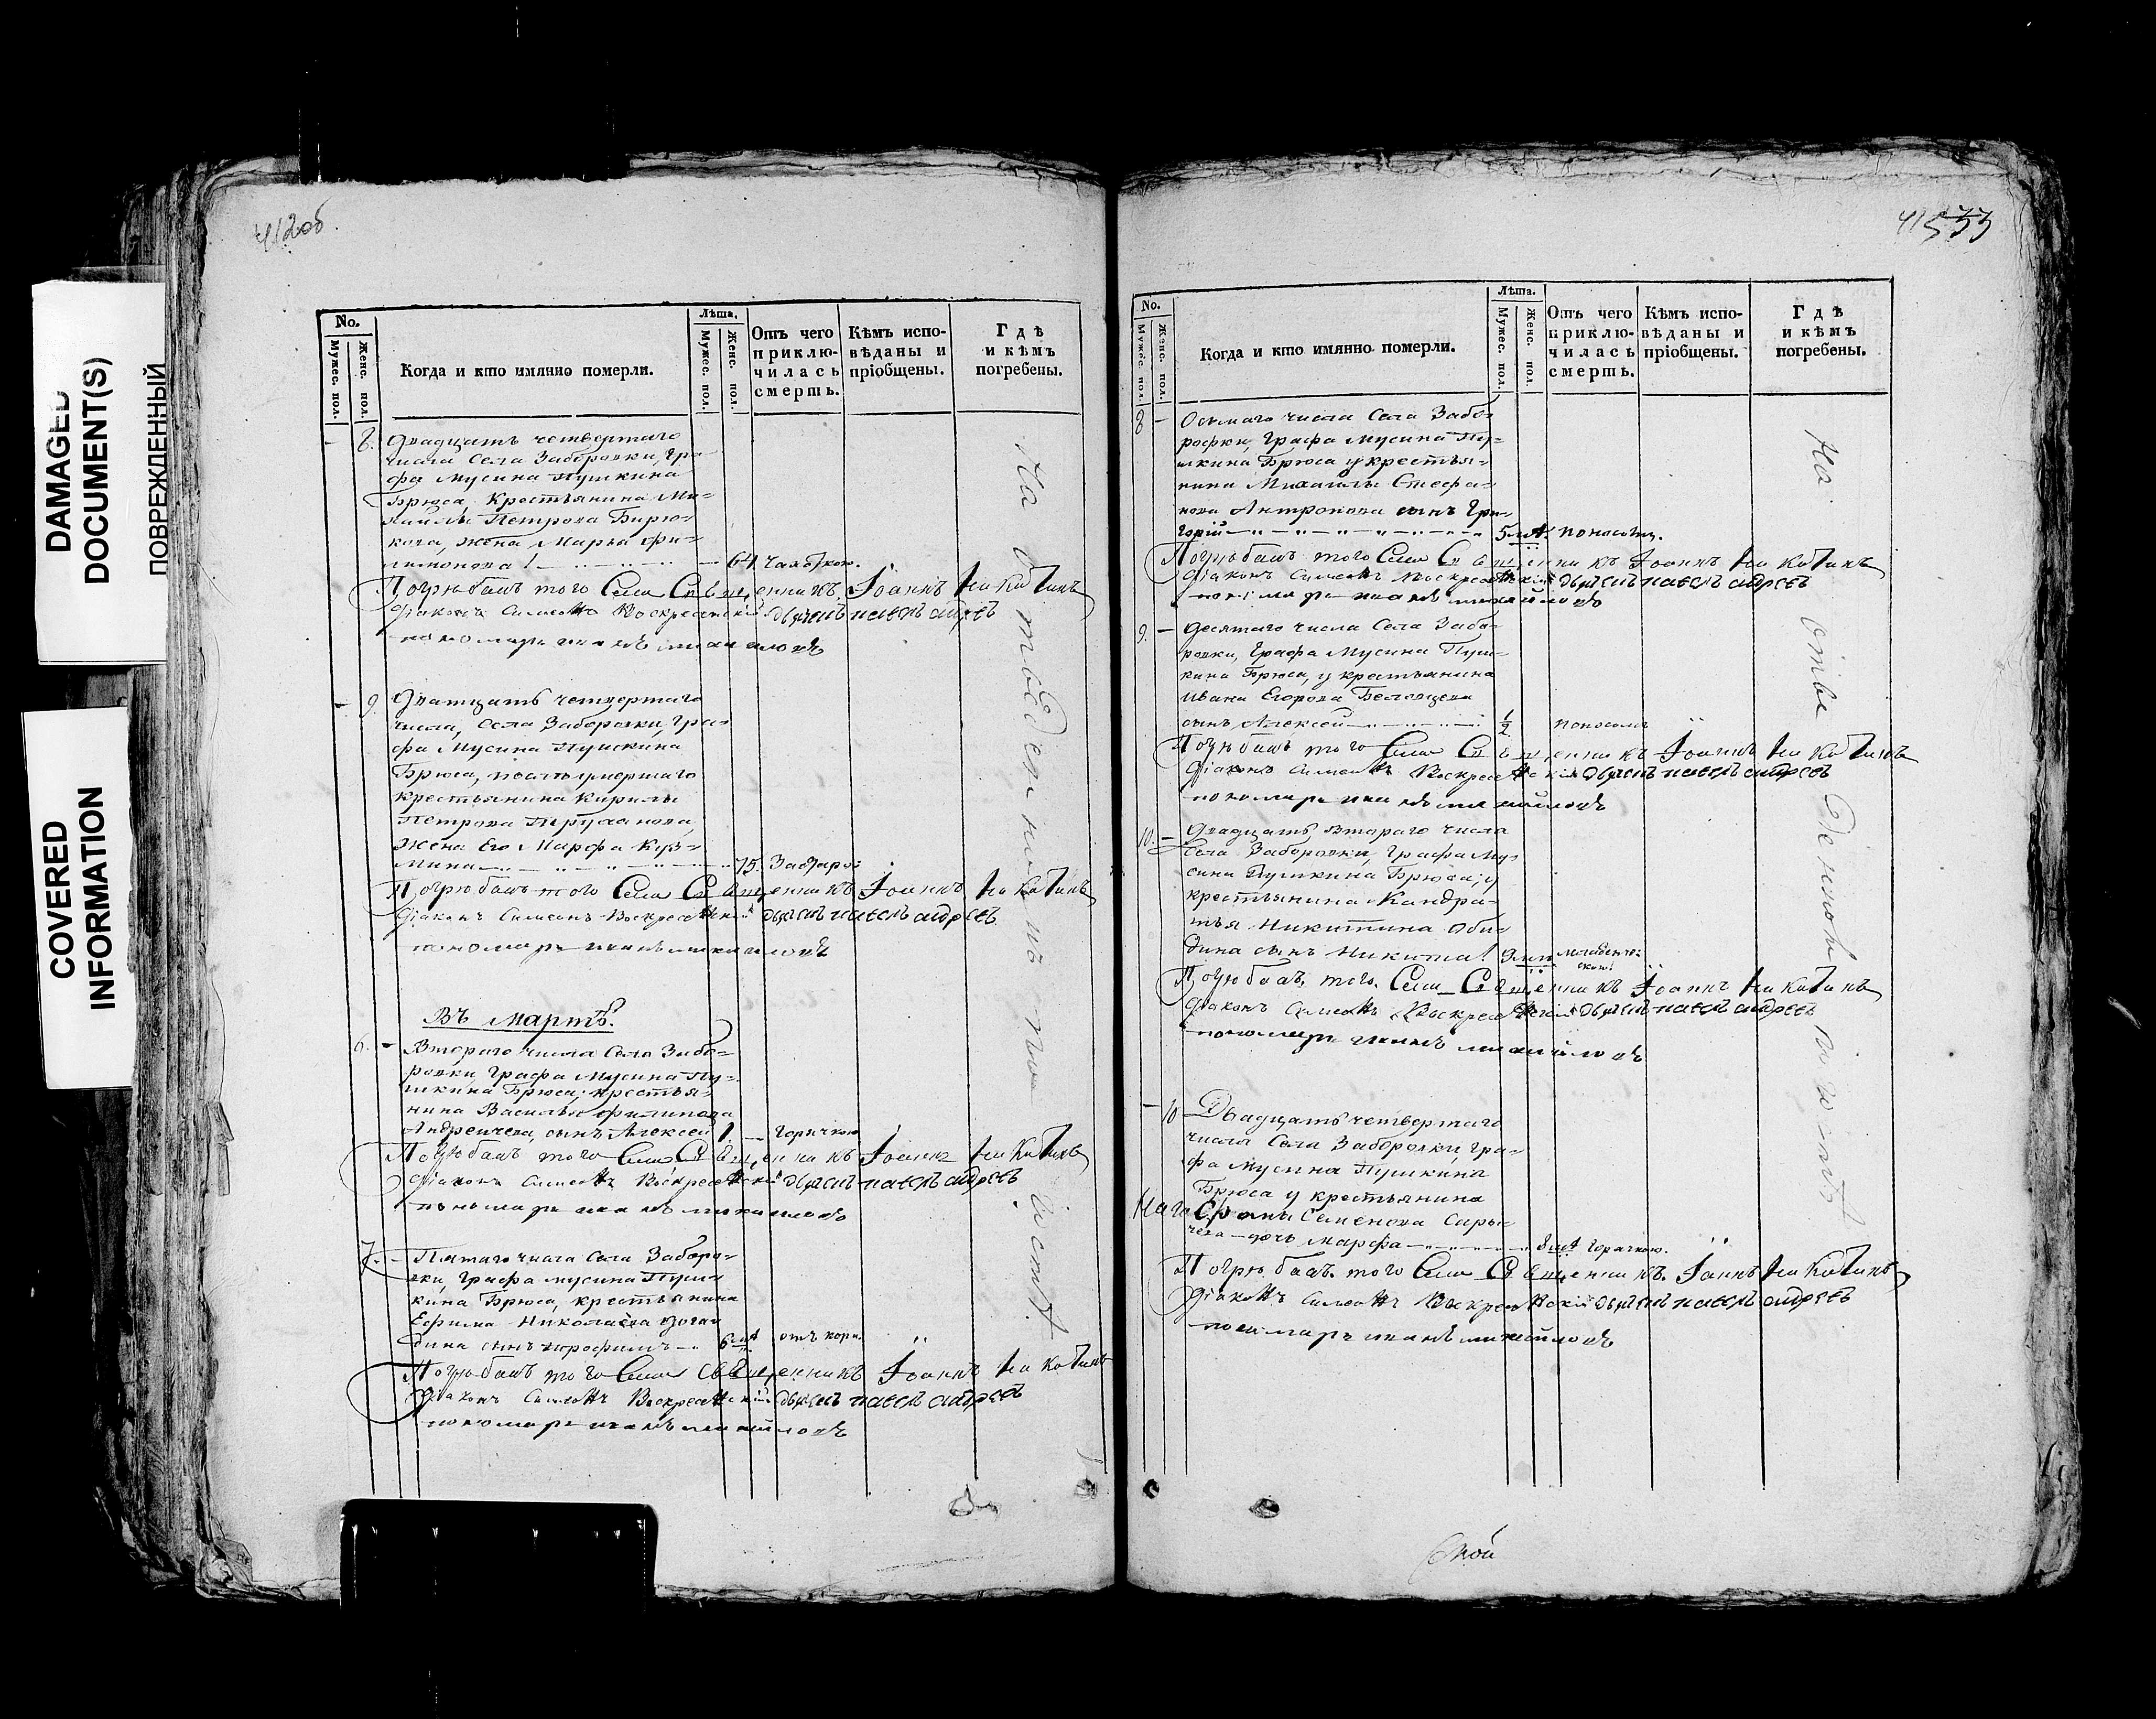 DAMAGED
DOCUMENT(S)
ПОВРЕЖДЕННЫЙ
COVERED
INFORMATION
412об
No.
Мужес. пол.
Женс. пол.
Когда и кто имянно померли.
Лѣта.
Мужес. пол.
Женс. пол.
Отъ чего
приклю-
чилась
смерть.
Кѣмъ испо-
вѣданы и
пріобщены.
Гдѣ
и кѣмъ
погребены.
8. Двадцать четвертаго
числа Села Заборовки, Гра
фа Мусина Пушкина
Брюса, Крестьянина Ми-
хайлы Петрова Бирю-
кова, жена Марья Фи-
лимонова 64. Чахоткою.
Погребалъ того Села Священникъ Іоаннъ
Діаконъ Симеонъ Воскресенскій дьячекъ павелъ андреевъ
пономарь иванъ михайловъ
9. Дватцать четвертаго
числа, Села Заборовки, Гра-
фа Мусина Пушкина
Брюса, послѣ умершаго
крестьянина Кирилы
Петрова Труханова,
жена Его Марфа Куз-
мина 75.
Погребалъ того Села Священникъ Іоаннъ
Діаконъ Симеонъ Воскресенскій дьячекъ павелъ андреевъ
пономарь иванъ михайловъ
Въ Мартѣ.
6. Втораго числа Села Забо-
ровки, Графа Мусина Пу-
шкина Брюса, крестья-
нина Василья Филипова
Андреичева, сынъ Алексей 1. Горячкою
Погребалъ того Села Священникъ Іоаннъ
Діаконъ Симеонъ Воскресенскій дьячекъ павелъ андреевъ
пономарь иванъ михайловъ
7. Пятаго числа Села Заборо-
вки, Графа мусина Пуш-
кина Брюса, крестьянина
Ефима Николаева
дина сынъ 6 отъ кори
Погребалъ того Села священникъ Іоаннъ
Діаконъ Симеонъ Воскресенскій дьячекъ павелъ андреевъ
пономарь иванъ михайловъ
На
No.
Мужес. пол.
Женс. пол.
Когда и кто имянно померли.
Лѣта.
Мужес. пол.
Женс. пол.
Отъ чего
приклю-
чилась
смерть.
Кѣмъ испо-
вѣданы и
пріобщены.
Гдѣ
и кѣмъ
погребены.
8 Осьмаго числа Села Забо-
ровки, Графа Мусина Пу-
шкина Брюса у крестья-
нина Михайлы Стефа-
нова Антропова сынъ Гри-
горій 5 поносомъ.
Погребалъ того Села Священникъ Іоаннъ
Діаконъ Симеонъ Воскресенскій дьячекъ павелъ андреевъ
пономарь иванъ михайловъ
9. Десятаго числа Села Забо-
ровки, Графа Мусина Пуш-
кина Брюса, у крестьянина
Ивана Егорова
сынъ Алексей 1/2 поносомъ
Погребалъ того Села Священникъ Іоаннъ
Діаконъ Симеонъ Воскресенскій дьячекъ павелъ андреевъ
пономарь иванъ михайловъ
10. Двадцать втораго числа
Села Заборовки, Графа Му-
сина Пушкина Брюса, у
крестьянина Кандра-
тья Никитина Оби-
дина сынъ Никита 9 младенче-
скою
Погребалъ того Села Священникъ Іоаннъ
Діаконъ Симеонъ Воскресенскій дьячекъ павелъ андреевъ
пономарь иванъ михайловъ
10 Двадцать четвертаго
числа Села Заборовки, Гра-
фа Мусина Пушкина
Брюса у крестьянина
Семенова Сары-
чева дочь Марфа 8 Горячкою.
Погребалъ того Села Священникъ Іоаннъ
Діаконъ Симеонъ Воскресенскій дьячекъ павелъ андреевъ
пономарь иванъ михайловъ
На